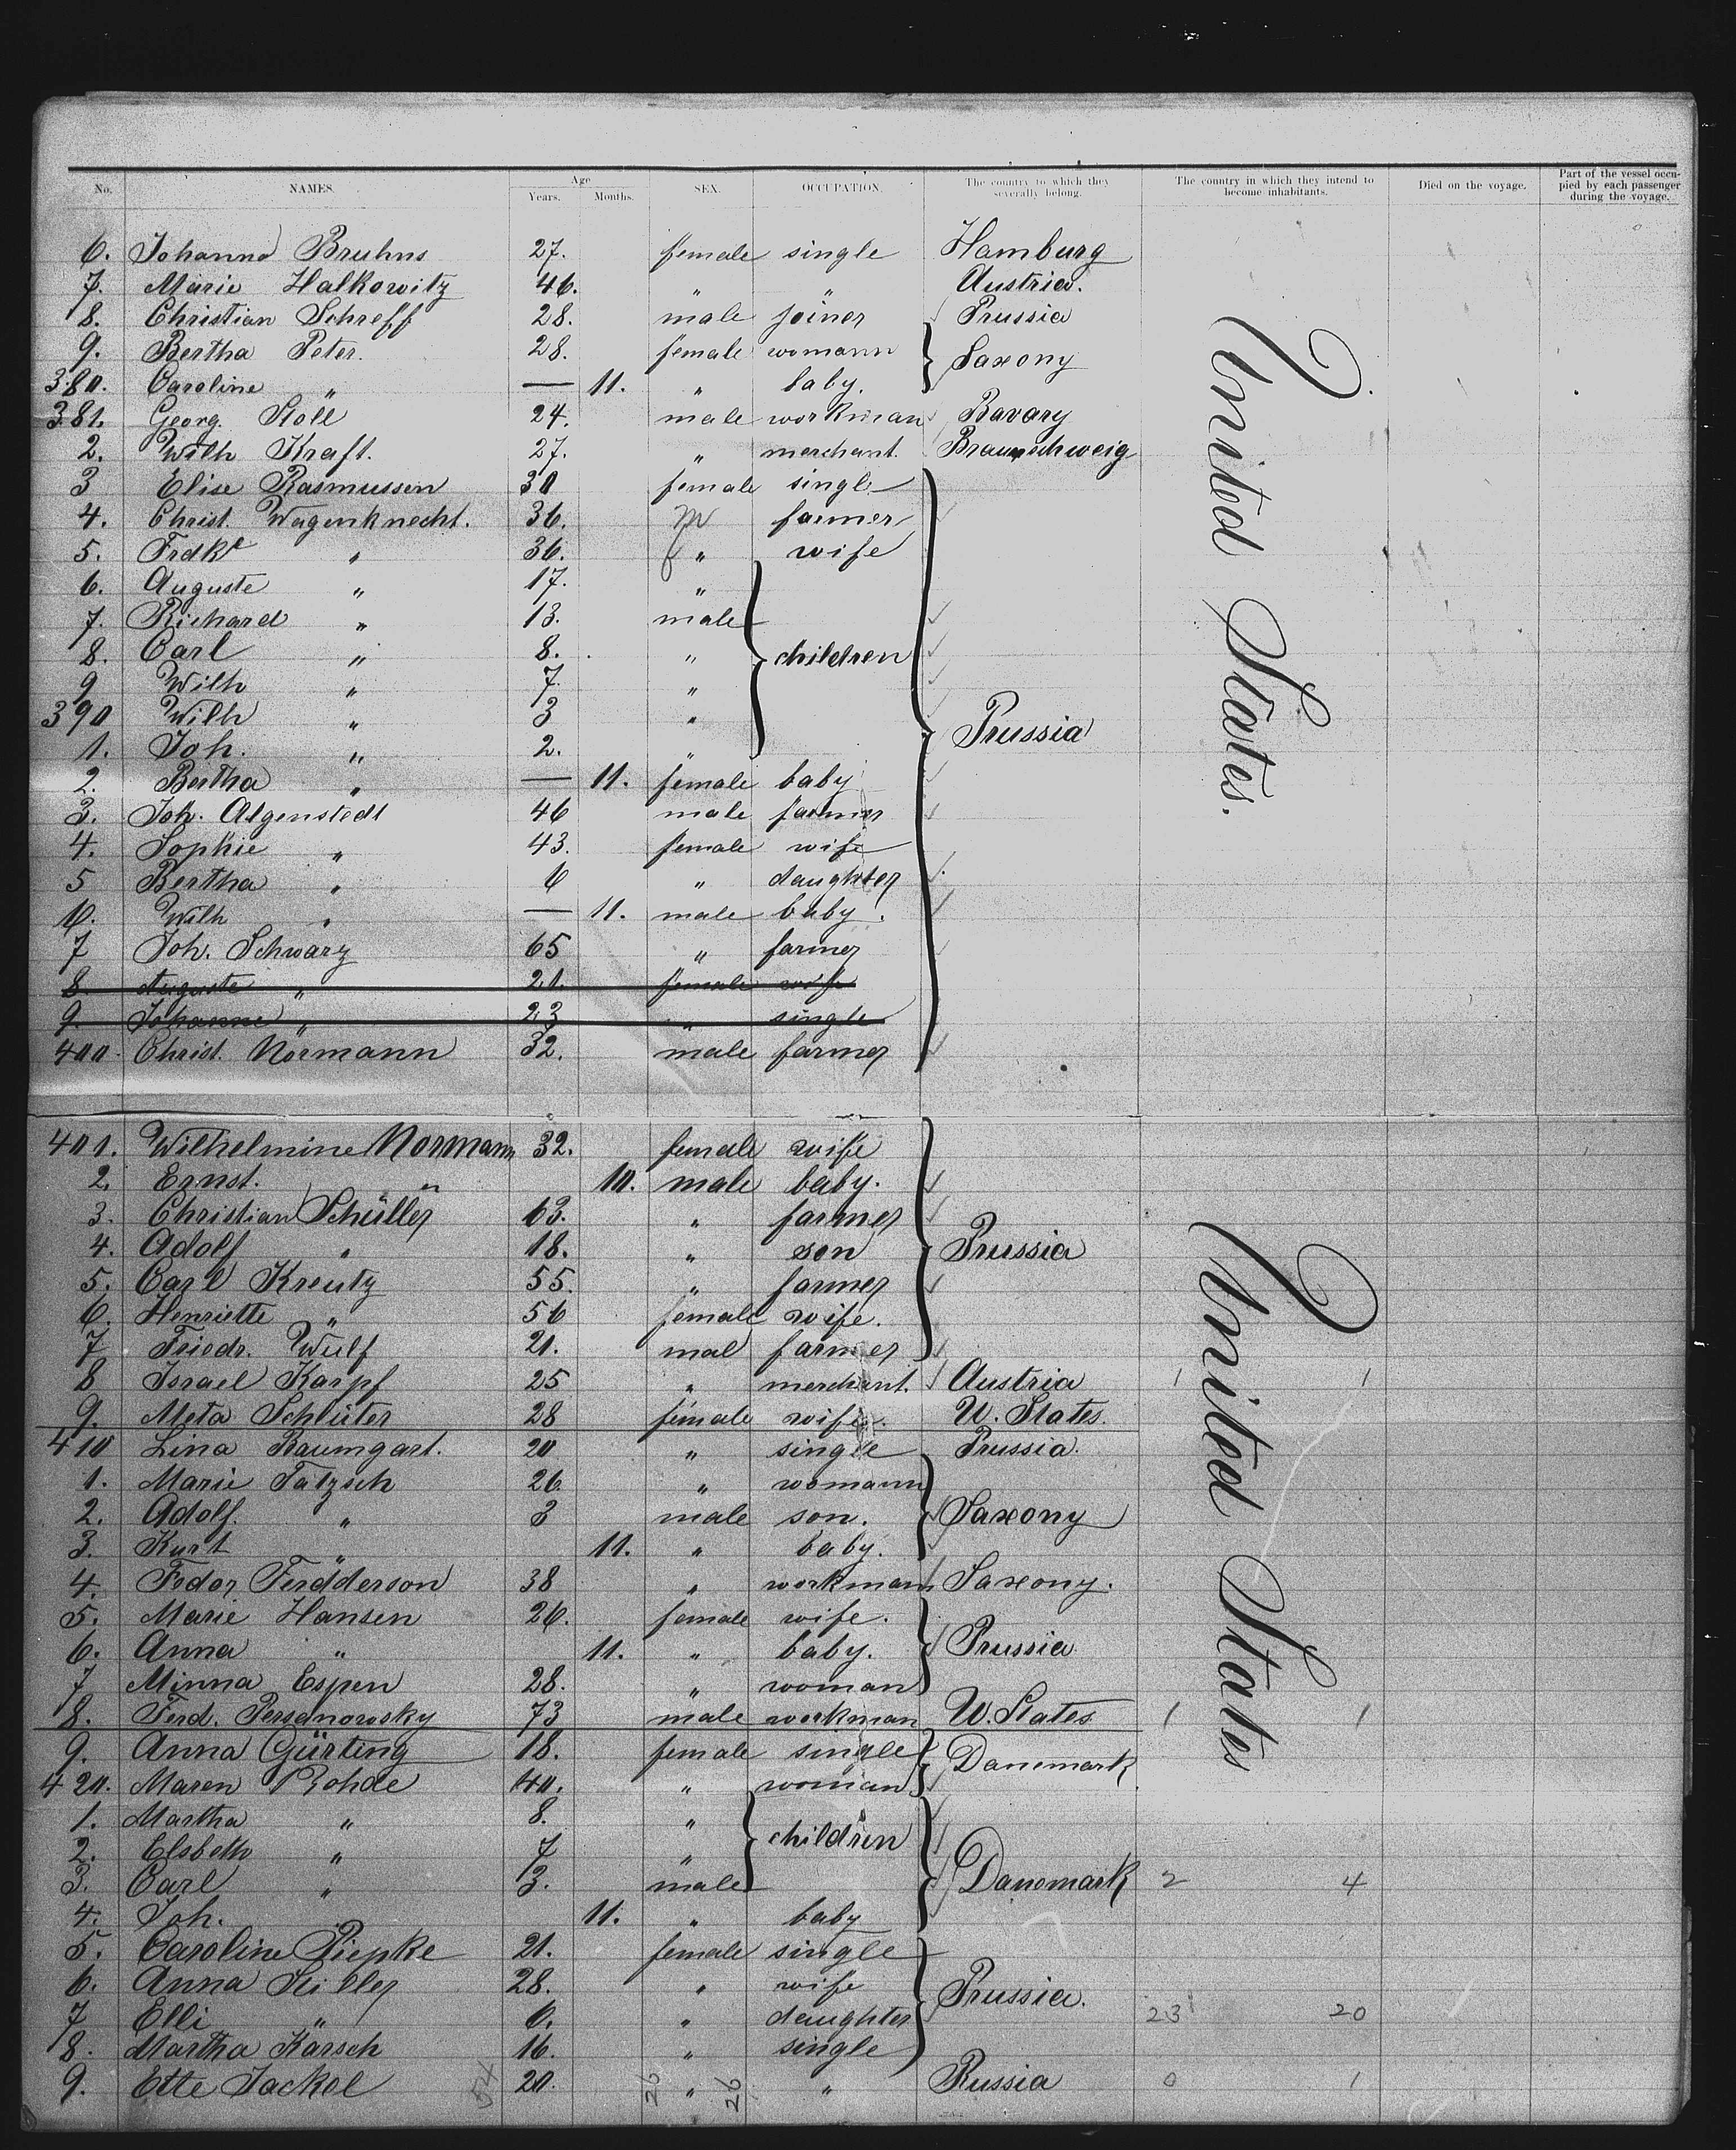 No. NAMES. Age Years. Months. SEX. OCCUPATION. The country to which they severally belong. The country in which they intend to become inhabitants. Died on the voyage. Part of the vessel occupied by each passenger during the voyage.
6. Johanna Bruhns 27. female single Hamburg
7. Marie Halkowitz 46. " " Austria.
8. Christian Schreff 28. male joiner Prussia
9. Bertha Peter. 28. female womann Saxony
380. Caroline " — 11. " baby.
381. Georg. Stoll 24. male workman Bavary
2. Wilh Kraft. 27. " merchant. Braunschweig
3 Elise Rasmussen 30 female single
4. Christ. Wagenknecht. 36. m farmer
5. Frdke " 36. f " wife
6. Auguste " 17. "
7. Richard " 13. male
8. Carl " 8. " children
9 Wilh " 7. "
390 Wilh " 3 " Prussia
1. Joh. " 2. "
2. Bertha " — 11. female baby
3. Joh. Algenstedt 46 male farmer
4. Sophie " 43. female wife
5 Bertha " 6 " daughter
6. Wilh " — 11. male baby.
7 Joh. Schwarz 65 " farmer
8 Auguste " 21. female wife
9. Johanne " 23 " single
400. Christ. Normann 32. male farmer
United States.
401. Wilhelmine Normann 32. female wife
2. Ernst. " 10. male baby.
3. Christian Schüller 63. " farmer
4. Adolf " 18. " son Prussia
5. Carl Kreutz 55. " farmer
6. Henriette " 56 female wife.
7 Friedr. Wulf 21. mal farmer
8 Israel Karpf 25 " merchant. Austria 1 1
9. Meta Schlüter 28 female wife. U. States.
410 Lina Baumgart. 20 " single Prussia.
1. Marie Tatzsch 26. " womann
2. Adolf. " 3 male son. Saxony
3. Kurt " 11. " baby.
4. Fedor Ferdderson 38 " workman Saxony.
5. Marie Hansen 26. female wife.
6. Anna " 11. " baby. Prussia
7 Minna Espen 28. " woman
8. Ferd. Persanowsky 73 male workman U. States 1 1
9. Anna Gürting 18. female single Danemark
420. Maren Rohde 40. " woman
1. Martha " 8. "
2. Elsbeth " 7 " children
3. Carl " 3. male Danemark 2 4
4. Joh. 11. " baby
5. Caroline Piepke 21. female single
6. Anna Stiller 28. " wife Prussia.
7 Elli " 6. " daughter 23 20
8. Martha Karsch 16. " single
9. Ette Jackel 20. " " Russia 0 1
54 26 26
United States